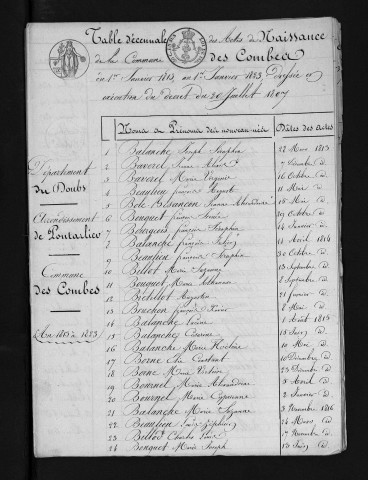 Table décennale des Actes de Naissance
de la Commune des Combes
du 1er Janvier 1813, au 1er Janvier 1823, dressée en
exécution du décret du 20 Juillet 1807
Département
du Doubs
Arrondissement
de Pontarlier
Commune
des Combes
An 1813 à 1823
Noms et Prénoms des nouveau-nés Dates des Actes
1 Balanche Joseph Séraphin 27 Mars 1813
2 Bavorel 7 d.
3 Bavorel Marie Virginie 16 Octobre d.
4 Beaulieu françois Auguste 11 Mai d.
5 Bole Besancon Jeanne 18 Mai d.
6 Bouquet françois 29 Octobre d.
7 Bourgeois françois Séraphin 14 Janvier d.
8 Balanche françois 11 Avril 1814
9 Beaulieu françois Séraphin 30 Octobre d.
10 Billot Marie Suzanne 13 Septembre d.
11 Bouquet Marie 2 Septembre d.
12 Augustin 21 Janvier d.
13 françois Xavier 2 Mai d.
14 Balanche 1 Août 1815
15 Balanche 18 d.
16 Balanche Marie 10 Mai d.
17 Borne Constant 10 Décembre d.
18 Borne Marie 23 Décembre d.
19 Bournel Marie Alexandrine 8 Avril d.
20 Bournel Marie Cyprienne 2 Janvier d.
21 Balanche Marie Suzanne 3 Novembre 1816
22 Beaulieu 24 Mars d.
23 Billod Charles 17 Novembre d.
24 Bouquet Marie Joseph 13 d.